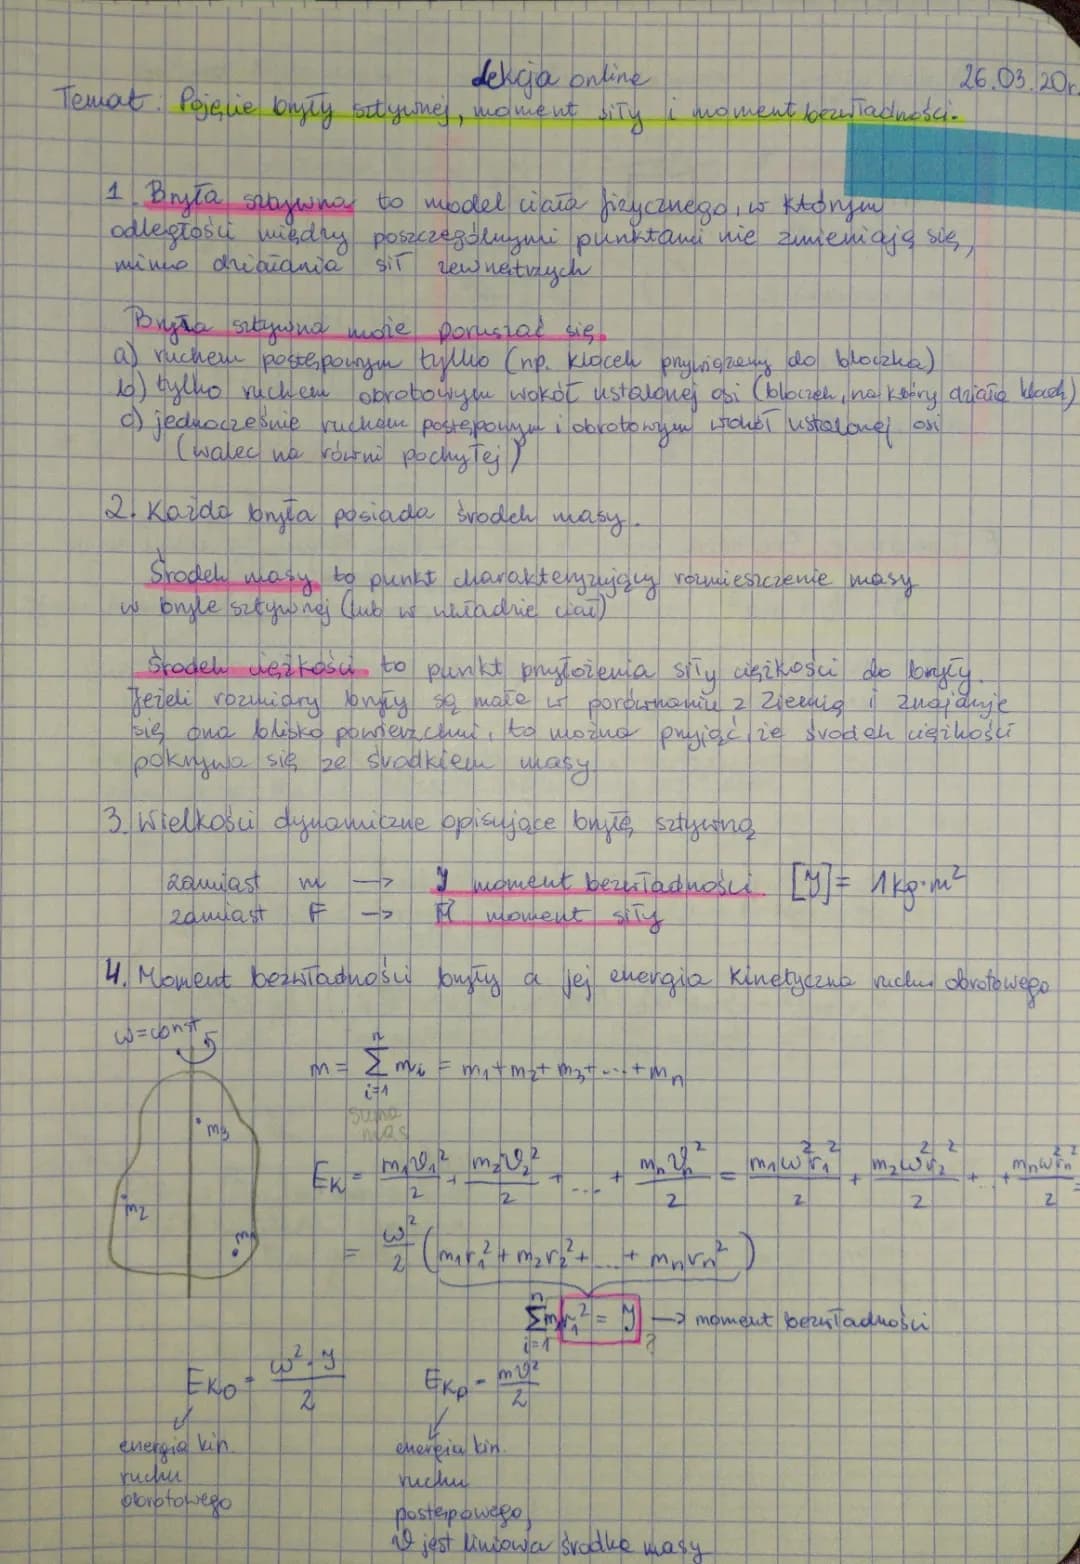 Lekcja online 26.03.20r.
Temat: Pojęcie bryły sztywnej, moment siły i moment bezwładności.
1. Bryła sztywna to model ciała fizycznego, w którym
odległości między poszczególnymi punktami nie zmieniają się,
mimo działania sił zewnętrznych
Bryła sztywna może poruszać się
a) ruchem postępowym tylko (np. klocek przywiązany do bloczka)
b) tylko ruchem obrotowym wokół ustalonej osi (bloczek, na który działa klocek)
c) jednocześnie ruchem postępowym i obrotowym wokół ustalonej osi
(walec na równi pochyłej)
2. Każda bryła posiada środek masy.
Środek masy to punkt charakteryzujący rozmieszczenie masy
w bryle sztywnej (lub w układzie ciał)
Środek ciężkości to punkt przyłożenia siły ciężkości do bryły.
Jeżeli rozmiary bryły są małe w porównaniu z Ziemią i znajduje
się ona blisko powierzchni, to można przyjąć, że środek ciężkości
pokrywa się ze środkiem masy
3. Wielkości dynamiczne opisujące bryłę sztywną
zamiast m → J moment bezwładności [J] = 1 kg·m²
zamiast F → M moment siły
4. Moment bezwładności bryły a jej energia kinetyczna ruchu obrotowego
ω=const
m = Σ mᵢ = m₁+m₂+m₃+...+mₙ
n
i=1
suma
mas
m₃
m₂
m₁
Eₖ = m₁ϑ₁²/2 + m₂ϑ₂²/2 + ... + mₙϑₙ²/2 = m₁ω²r₁²/2 + m₂ω²r₂²/2 + ... + mₙω²rₙ²/2 =
= ω²/2 (m₁r₁² + m₂r₂² + ... + mₙrₙ²)
n
Σ mᵢr₁² = J → moment bezwładności
i=1 ?
Eₖₒ = ω²·J/2 Eₖₚ = mϑ²/2
energia kin. energia kin.
ruchu ruchu
obrotowego postępowego,
ϑ jest liniowa środka masy